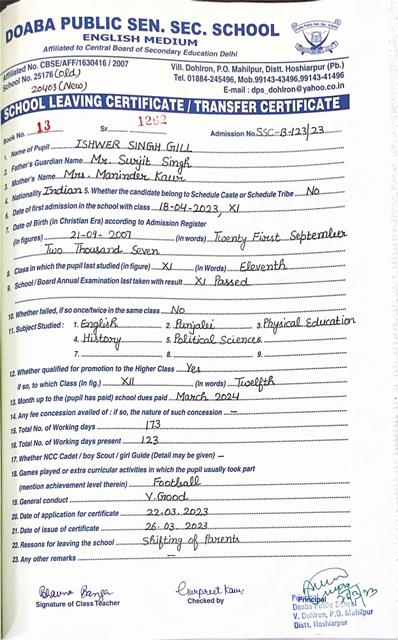 DOABA PUBLIC SEN. SEC. SCHOOL
ENGLISH MEDIUM
Affiliated to Central Board of Secondary Education Delhi
Affiliated No. CBSE/AFF/1630416 / 2007
School No. 25176 (old)
20403 (New)
Vill. Dohlron, P.O. Mahilpur, Distt. Hoshiarpur (Pb.)
Tel. 01884-245496, Mob.99143-43496,99143-41496
E-mail : dps_dohlron@yahoo.co.in
SCHOOL LEAVING CERTIFICATE / TRANSFER CERTIFICATE
Book No. 13 Sr. 1262 Admission No. SSC-B-123/23
1. Name of Pupil ISHWER SINGH GILL
2. Father's Guardian Name Mr. Surjit Singh
3. Mother's Name Mrs. Maninder Kaur
4. Nationality Indian 5. Whether the candidate belong to Schedule Caste or Schedule Tribe No
6. Date of first admission in the school with class 18-04-2023, XI
7. Date of Birth (in Christian Era) according to Admission Register
(in figures) 21-09-2007 (in words) Twenty First September
Two Thousand Seven
8. Class in which the pupil last studied (in figure) XI (in Words) Eleventh
9. School / Board Annual Examination last taken with result XI Passed
10. Whether failed, if so once/twice in the same class No
11. Subject Studied : 1. English 2. Punjabi 3. Physical Education
4. History 5. Political Science 6.
7. 8. 9.
12. Whether qualified for promotion to the Higher Class Yes
if so, to which Class (In fig.) XII (In Words) Twelfth
13. Month up to the (pupil has paid) school dues paid March 2024
14. Any fee concession availed of : if so, the nature of such concession —
15. Total No. of Working days 173
16. Total No. of Working days present 123
17. Whether NCC Cadet / boy Scout / girl Guide (Detail may be given) —
18. Games played or extra curricular activities in which the pupil usually took part
(mention achievement level therein) Football
19. General conduct V. Good
20. Date of application for certificate 22.03.2023
21. Date of issue of certificate 26.03.2023
22. Reasons for leaving the school Shifting of Parents
23. Any other remarks —
Signature of Class Teacher
Gurpreet Kaur
Checked by
Principal
Doaba Public School
V. Dohlron, P.O. Mahilpur
Distt. Hoshiarpur